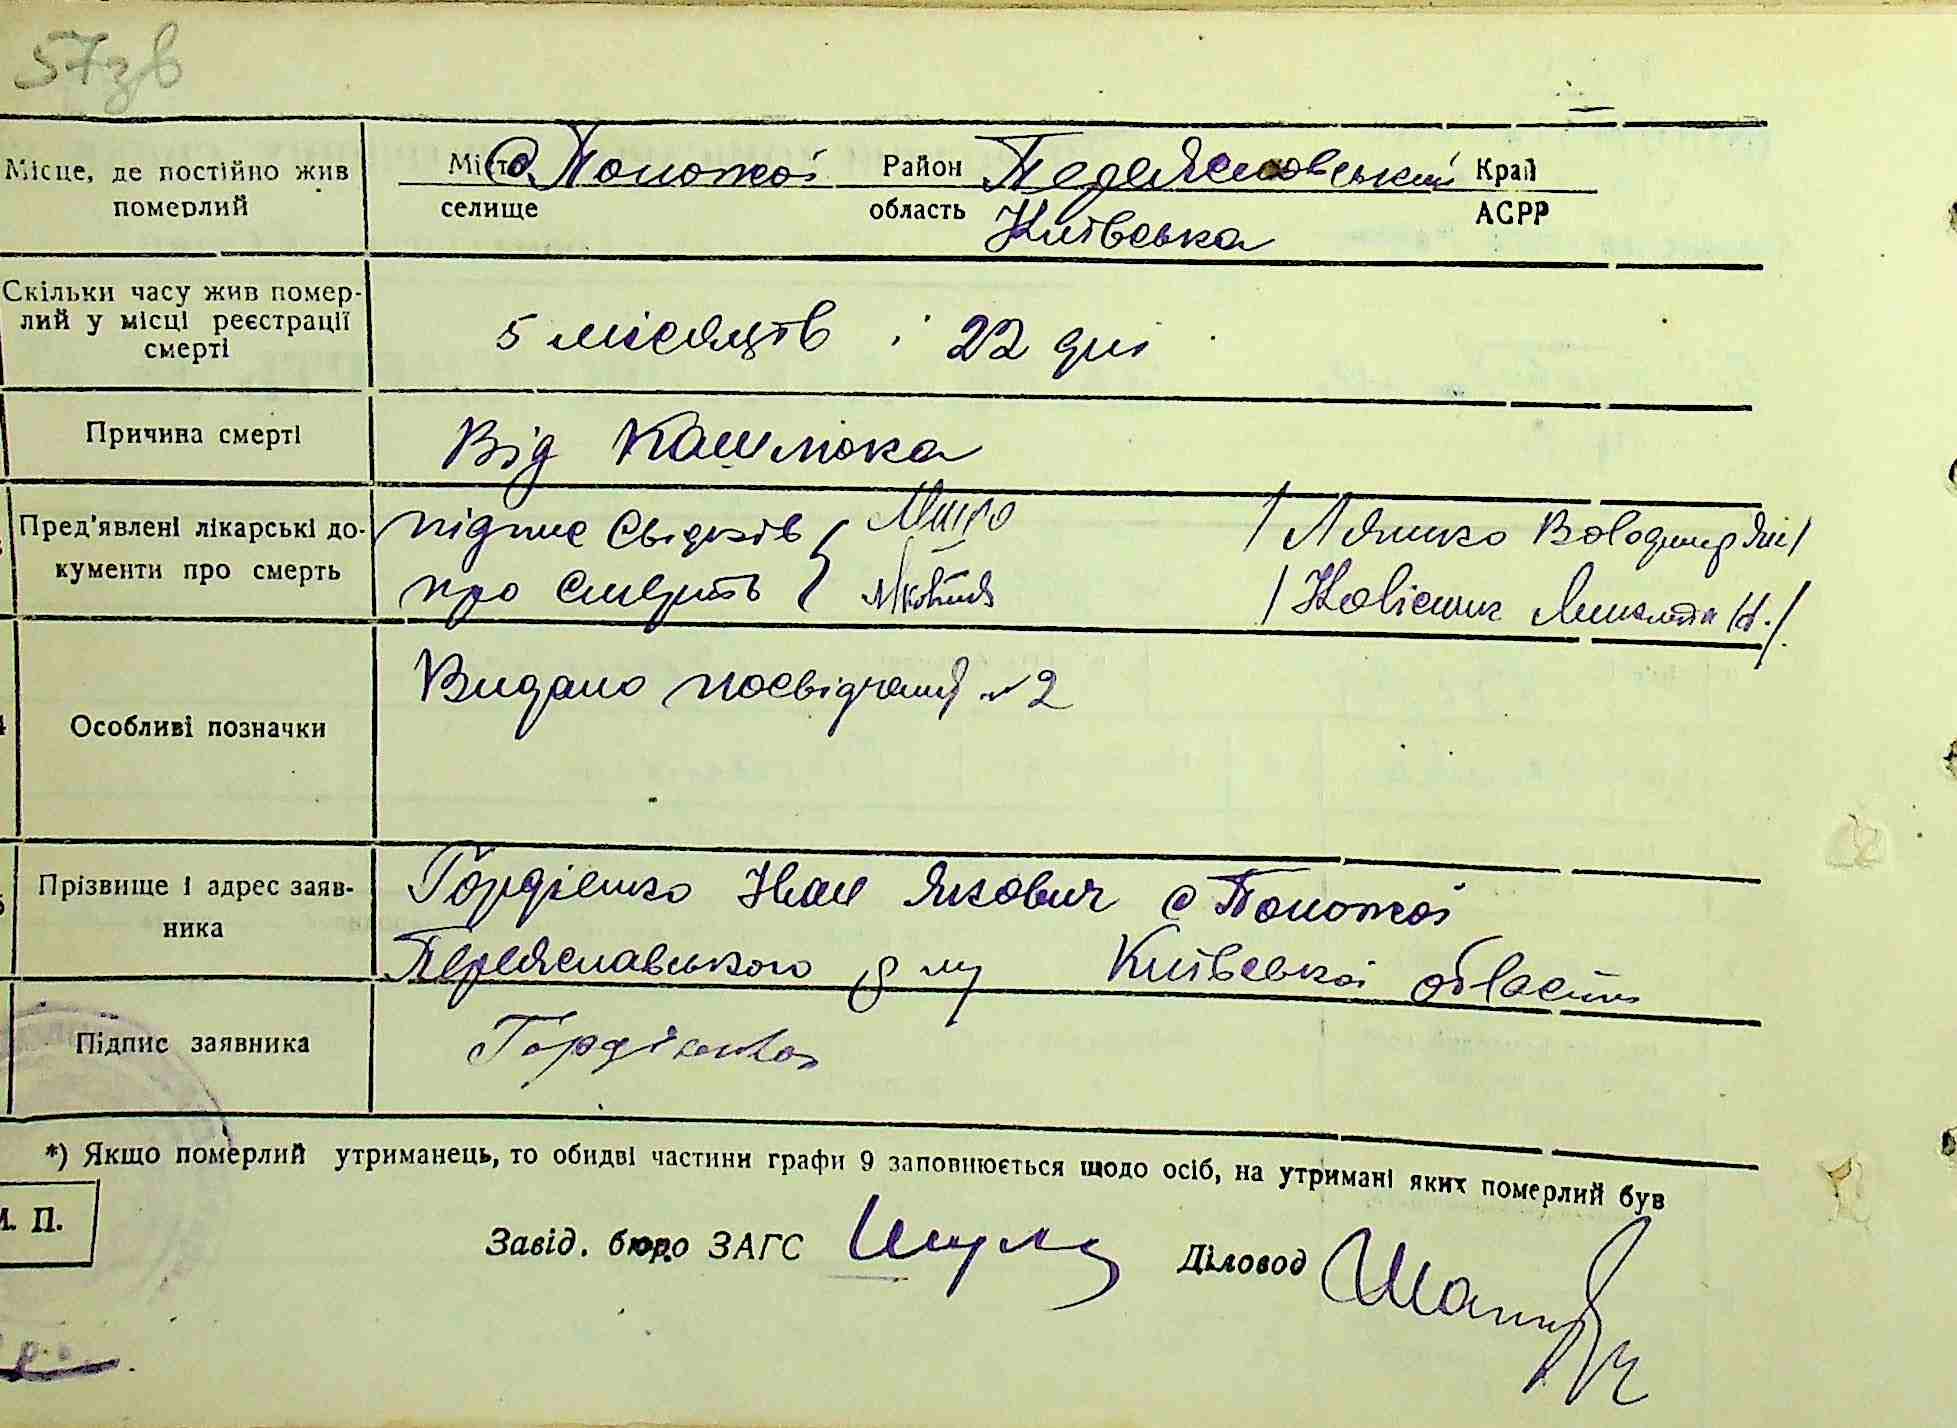 57зв
Місце, де постійно жив померлий
Місто с Пологої Район Переяславський Край
селище область Київська АСРР
Скільки часу жив помер-
лий у місці реєстрації
смерті
5 місяців і 22 дні
Причина смерті
Від Кашлюка
Пред'явлені лікарські до-
кументи про смерть
підпис свідків
про смерть
/ Ляшко Володимир
/
Особливі позначки
Видано посвідчення № 2
Прізвище і адрес заяв-
ника
Гордієнко Іван Якович с
Переяславського р-ну Київської області
Підпис заявника
Гордієнко
*) Якщо померлий утриманець, то обидві частини графи 9 заповнюється щодо осіб, на утримані яких померлий був
М. П.
Завід. бюро ЗАГС Діловод